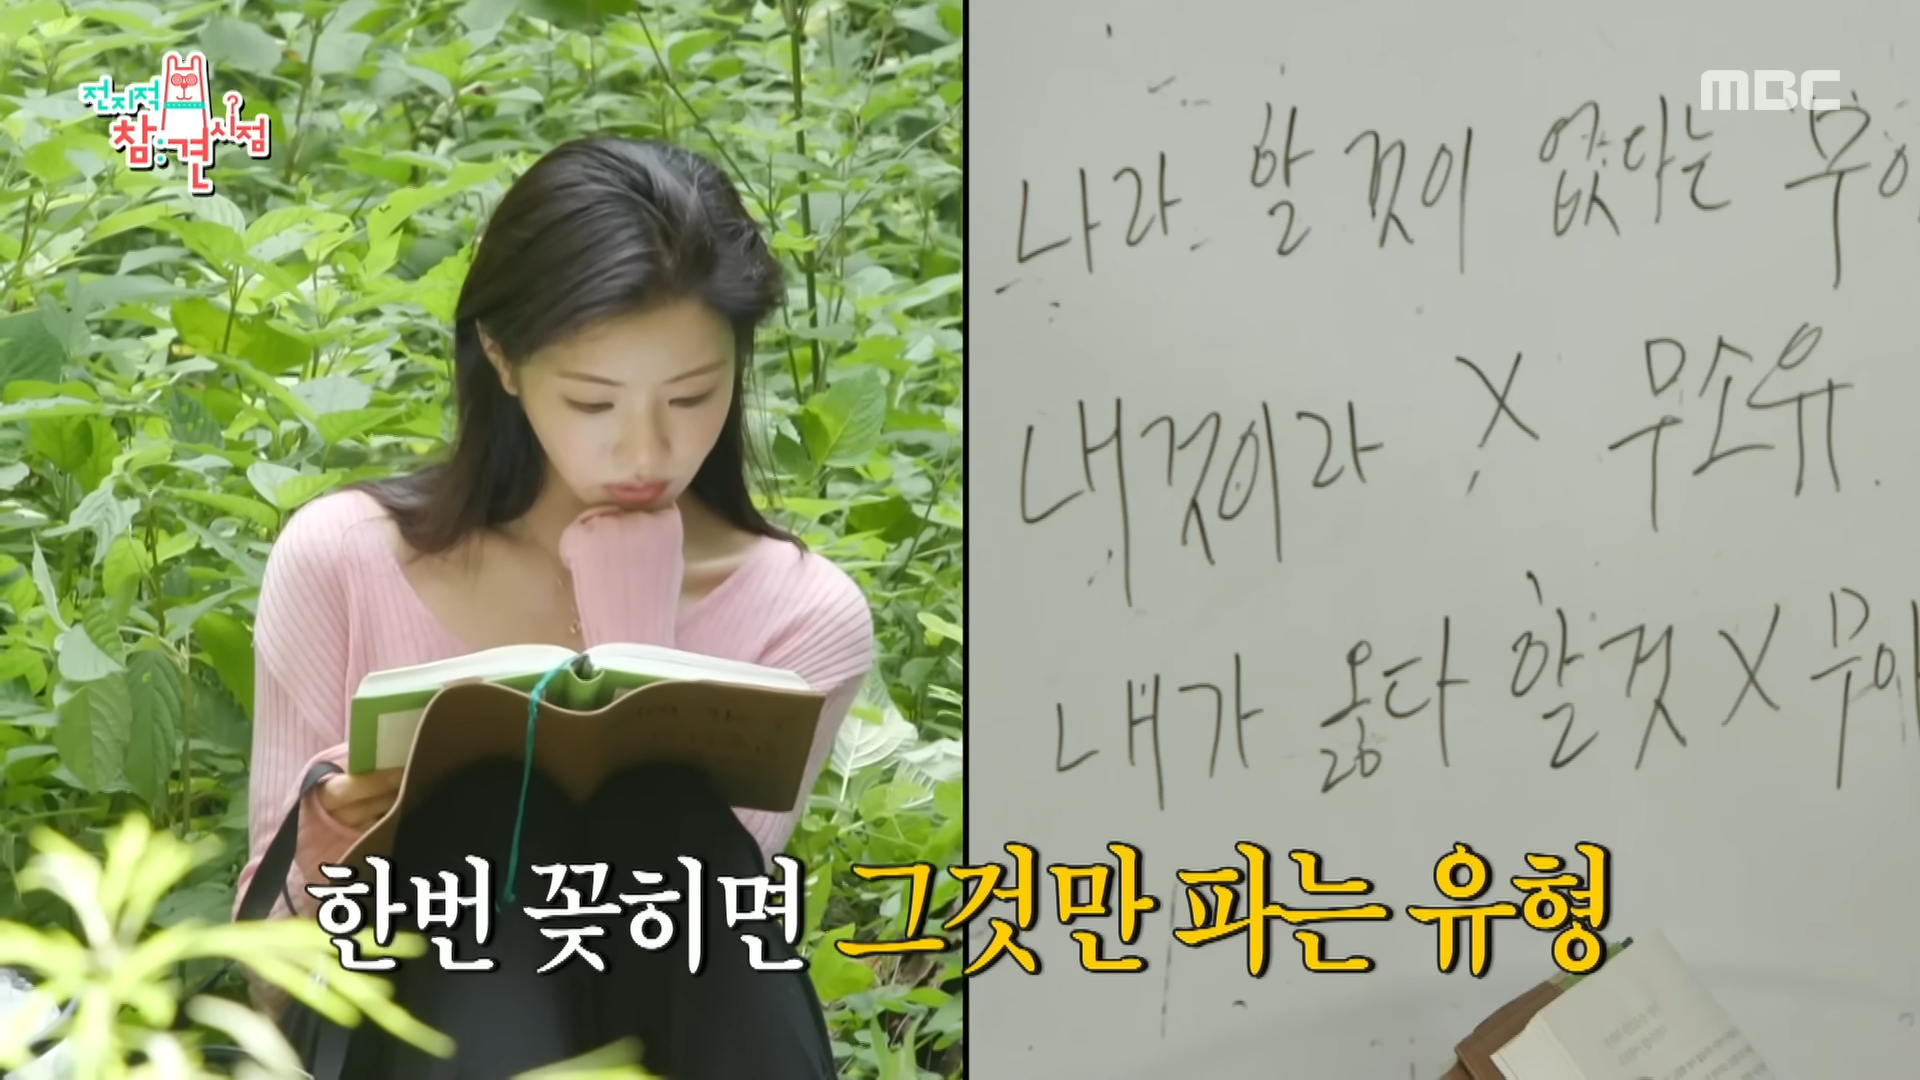 전지적
참견 시점
MBC
나라 할 것이 없다는 무아
내것이라 X 무소유.
내가 옳다 할것 X 무아
한번 꽂히면 그것만 파는 유형